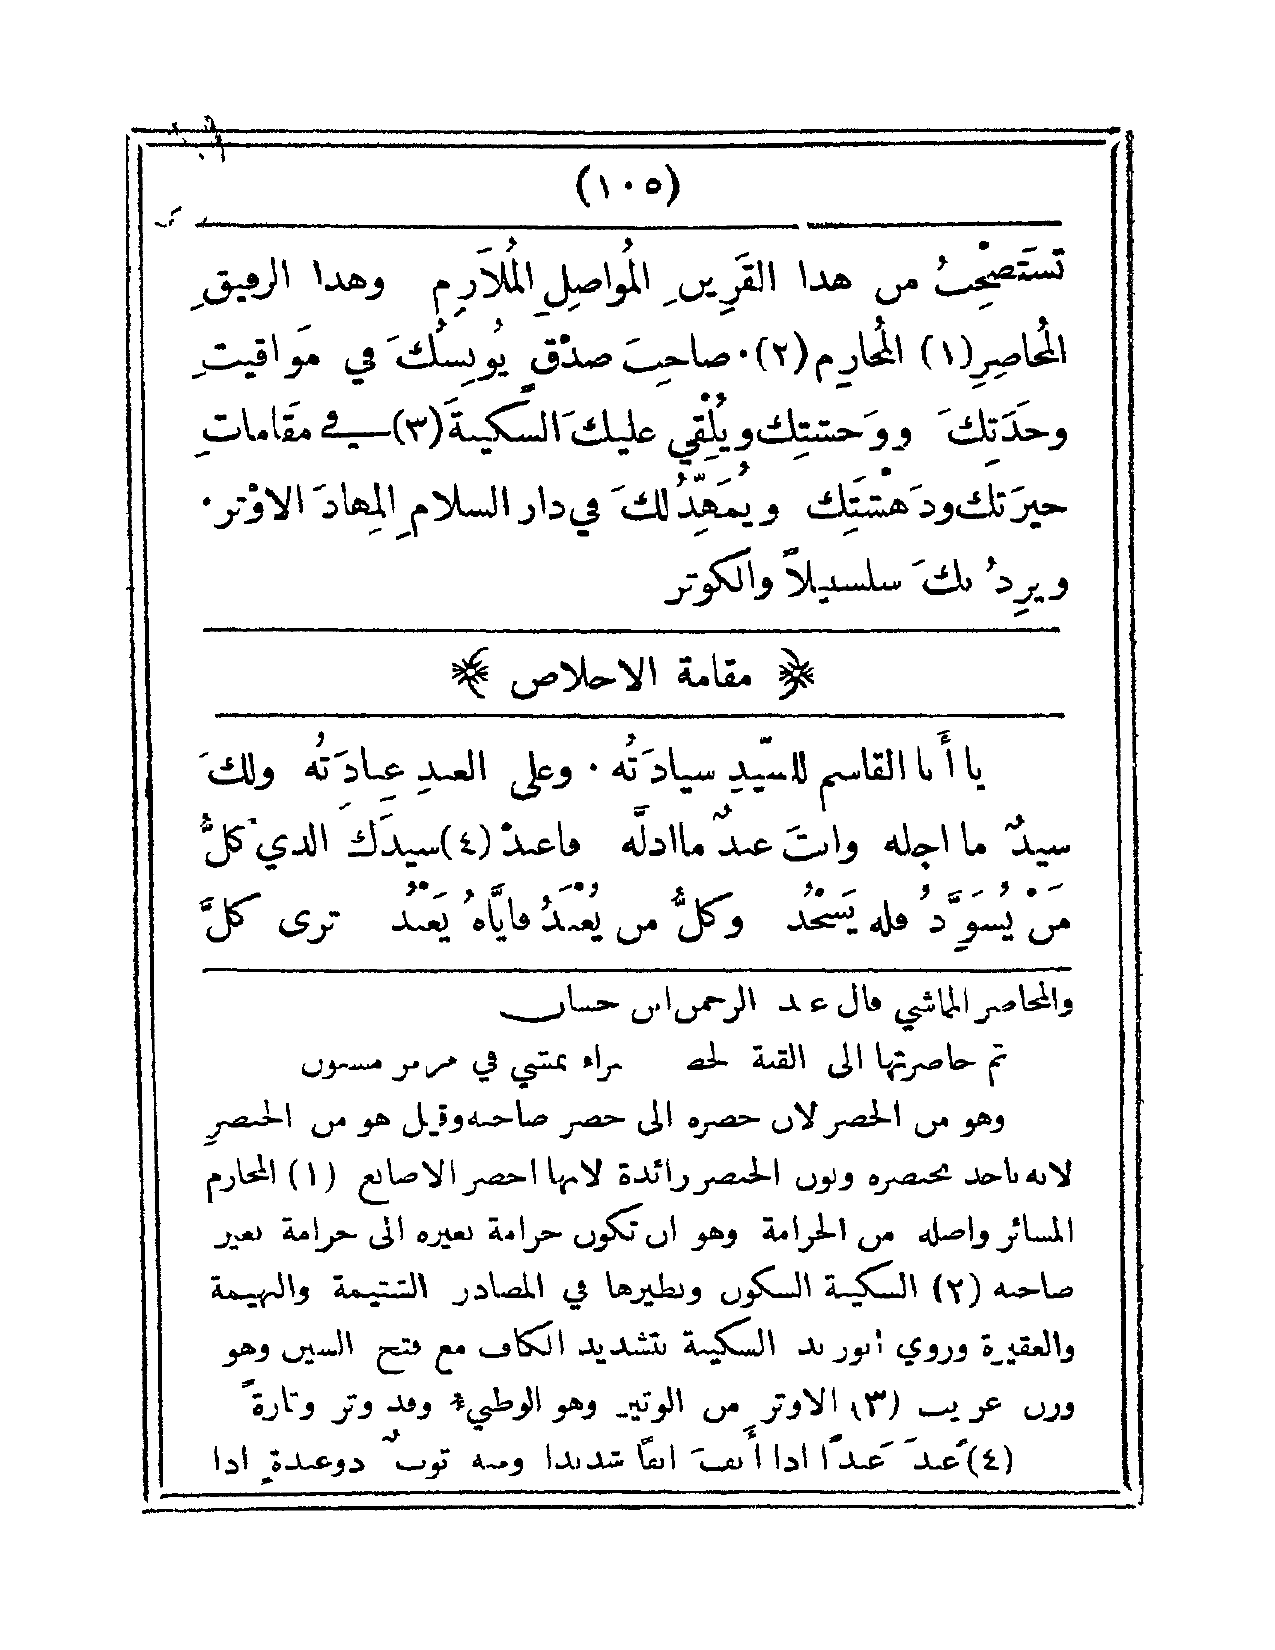 (١٠٥)
تَستَصْحِبُ من هدا القَرِينِ المُواصِلِ المُلَازِم وهدا الرفيقِ
المُحاصِرِ(١) المُحَارِم(٢)۰ صاحِبَ صدْقٍ يُونِسُكَ في مَوَاقيتِ
وحْدَتِكَ ووَحشتِك ويُلْقِي عليكَ السَّكينَةَ(٣) في مَقَاماتِ
حيرَتك ودَهْشَتِك ويُمَهِّدُ لكَ في دار السلامِ المِهادَ الاوْتر۰
ويرِدُ بكَ سلسبيلاً والكوتر
﴿ مقامة الاحلاص ﴾
يا أَبا القاسم للسّيِدِ سيادَتُه ۰ وعلى العبدِ عِبادَتُه ولكَ
سيدٌ ما اجله وانتَ عبدٌ ماادلَّه فاعبدْ (٤)سيدَك الدي كلُّ
مَنْ يُسَوَّدُ فله يَسْجُدُ وكلُّ من يُعْبَدُ فايَّاهُ يَعْبُدُ ترى كلَّ
والمحاصر الماشي قال عبد الرحمن ابن حسان
تم حاصرتها الى القبة تمشي في مرمر مسنون
وهو من الخصر لان حصره الى حصر صاحبه وقيل هو من الخنصرِ
لانه ياحد بخنصره ونون الخنصر رائدة لانها احصر الاصابع (١) المحارم
المسائر واصله من الحرامة وهو ان تكون حرامة بعيره الى حرامة بعير
صاحبه (٢) السكينة السكون ونظيرها في المصادر الشتيمة والبهيمة
والعقيرة وروي ابور يد السكينة بتشديد الكاف مع فتح السين وهو
ورن عريب (٣) الاوتر من الوتير وهو الوطيء وقد وتر وتارةً
(٤)عَبدَ عَبدًا ادا أَنفَ انفًا شديدا ومنه توبٌ دوعبدةٍ ادا